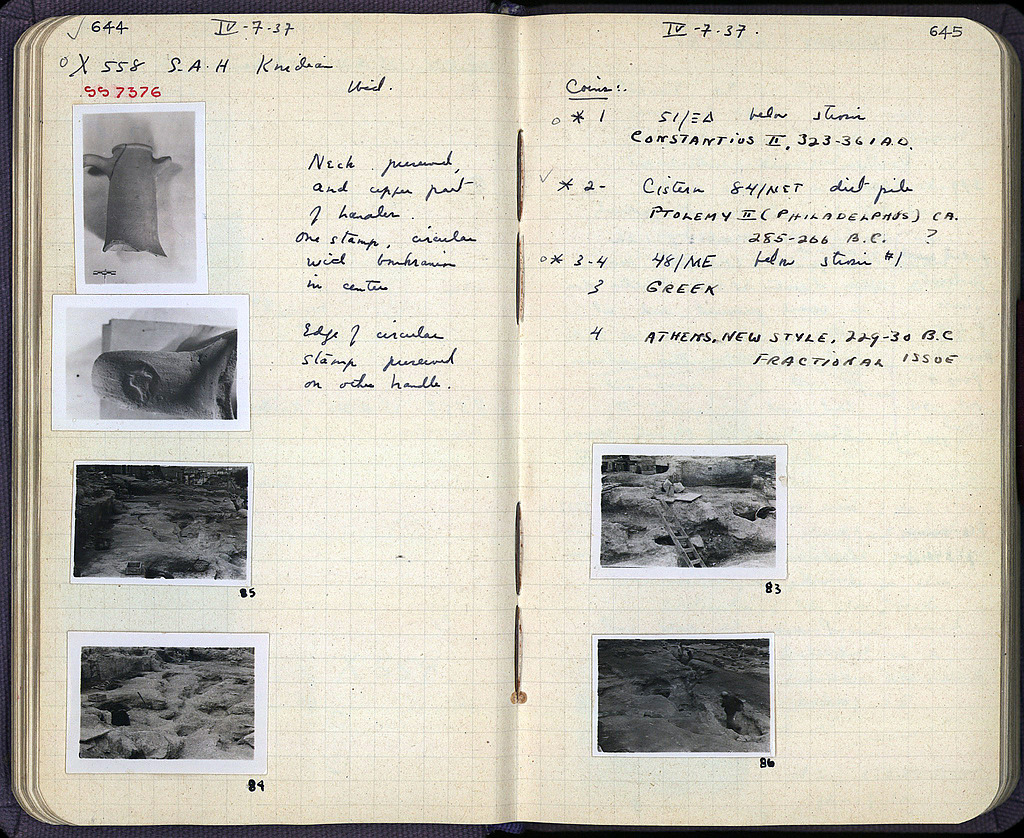 644
IV-7-37
X 558 S.A.H Knidian
SS 7376
Neck preserved,
and upper part
of handles.
One stamp, circular
with boukranion
in center
Edge of circular
stamp preserved
on other handle.
85
84
IV-7-37.
645
Coins:.
* 1 51/ΞΔ below strosis
CONSTANTIUS II, 323-361 A.D.
* 2- Cistern 84/ dirt pile
PTOLEMY II (PHILADELPHUS) CA.
285-266 B.C. ?
* 3-4 48/ME below strosis #1
3 GREEK
4 ATHENS, NEW STYLE, 229-30 B.C
FRACTIONAL ISSUE
83
86